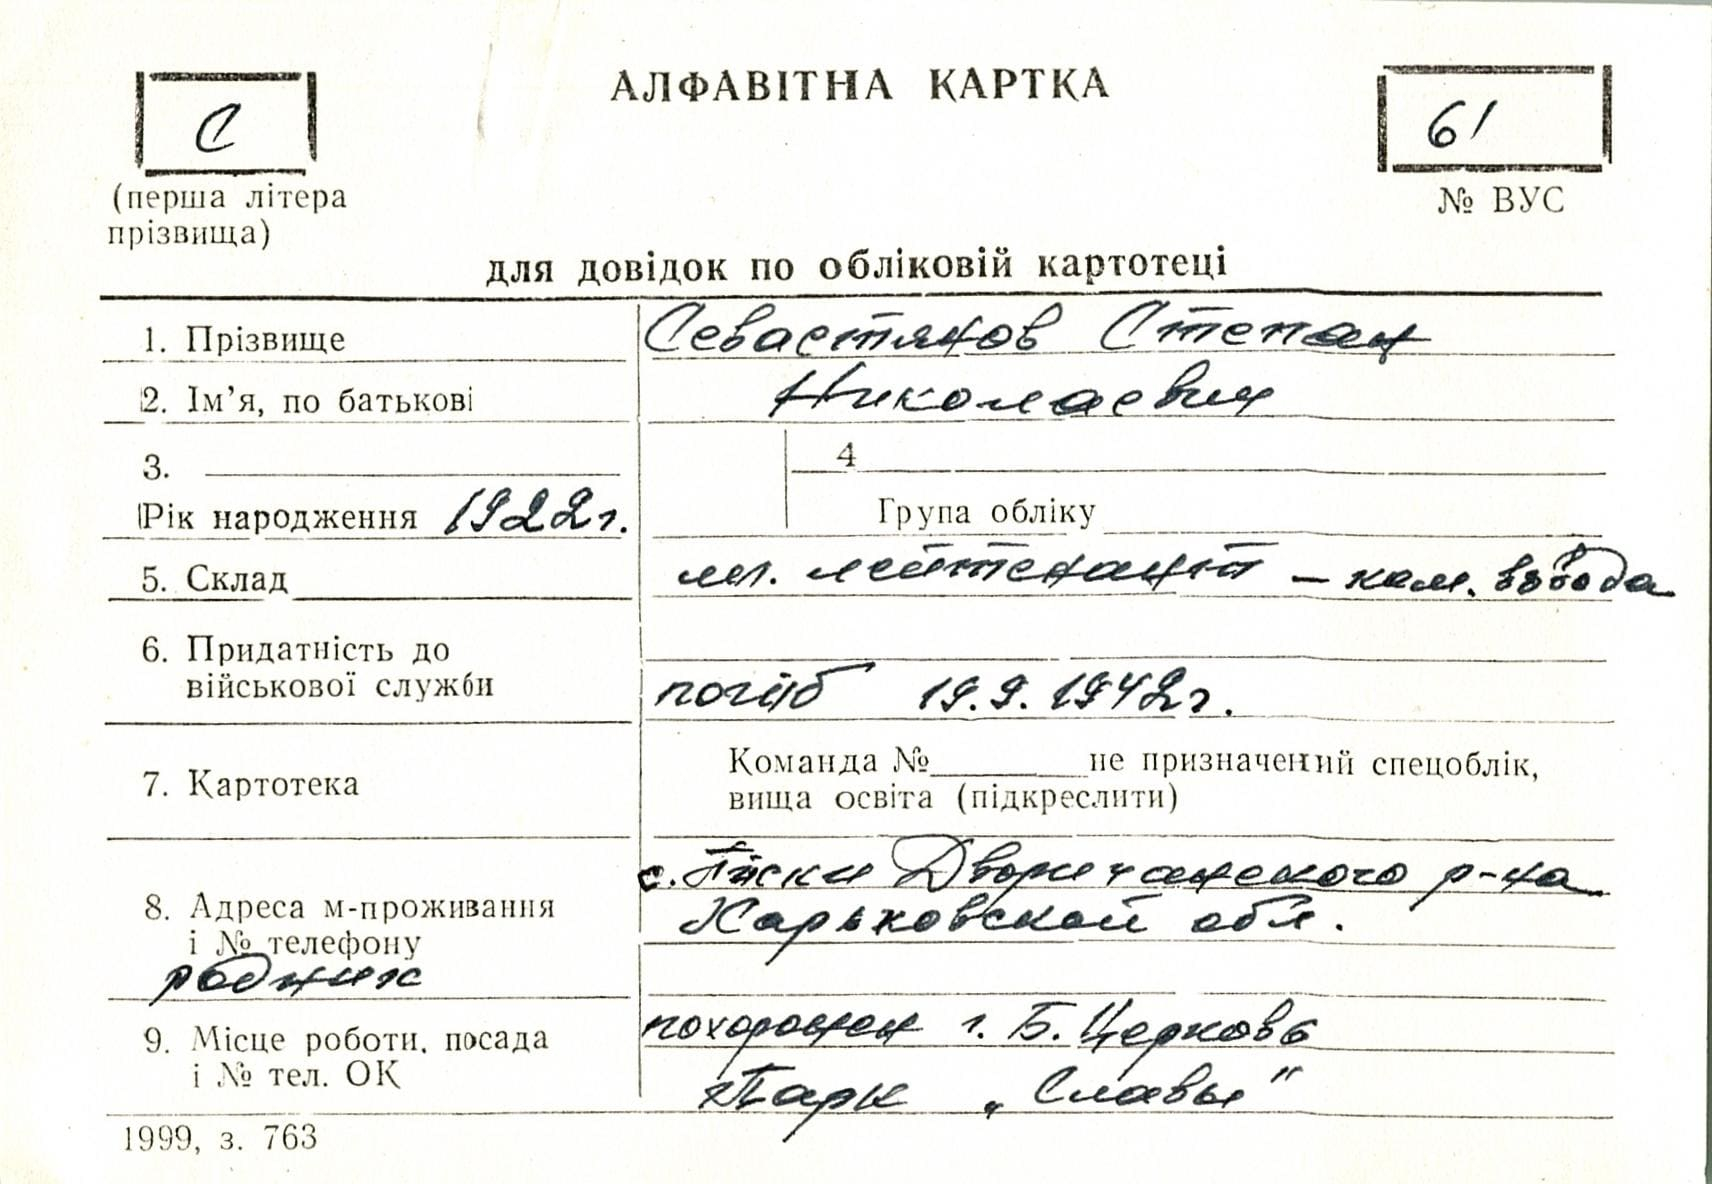 АЛФАВІТНА КАРТКА
С
61
(перша літера
прізвища)
№ ВУС
для довідок по обліковій картотеці
1. Прізвище Севастянов Степан
2. Ім’я, по батькові Николаевич
3.
4
Рік народження 1922г.
Група обліку
5. Склад мл. лейтенант – ком. взвода
6. Придатність до
військової служби погиб 19.9.1942г.
7. Картотека
Команда №______не призначений спецоблік,
вища освіта (підкреслити)
с. Піски Дворичанского р-на
8. Адреса м-проживання Харьковской обл.
і № телефону
родник
9. Місце роботи, посада похоронен г. Б. Церковь
і № тел. ОК Парк „Славы"
1999, з. 763